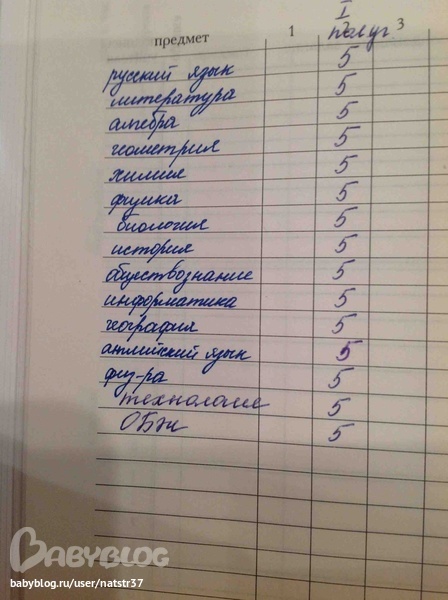 I
предмет 1 2 полуг. 3
русский язык 5
литература 5
алгебра 5
геометрия 5
химия 5
физика 5
биология 5
история 5
обществознание 5
информатика 5
география 5
английский язык 5
физ-ра 5
технология 5
ОБЖ 5
BABYBLOG
babyblog.ru/user/natstr37